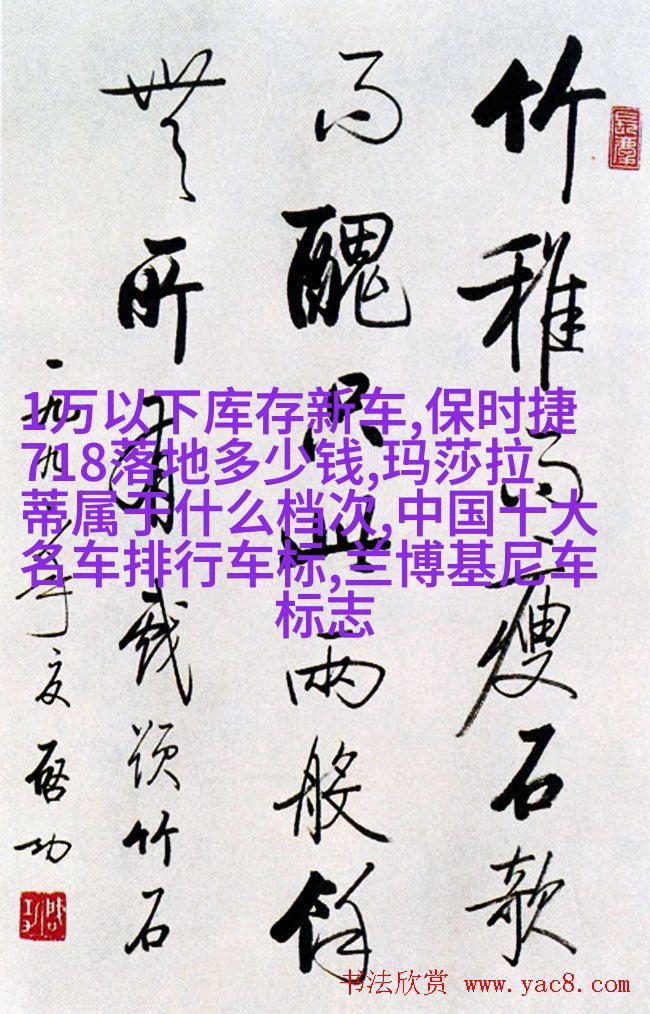 1万以下库存新车,保时捷
718落地多少钱,玛莎拉
蒂属于什么档次,中国十大
名车排行车标,兰博基尼车
标志
竹稚而瘦石欹
而醜只此兩般餘
無所有戲題竹石
一九年夏啟功
书法欣赏 www.yac8.com